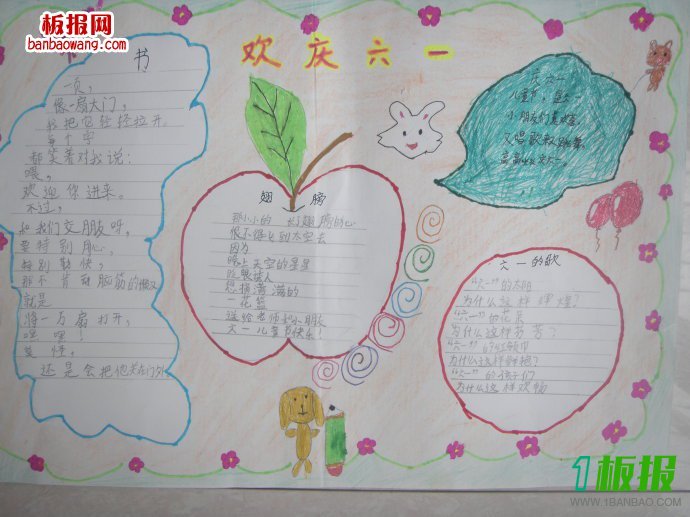 板报网
banbaowang.com
欢庆六一
书
一页，
像一扇大门，
我把它轻轻拉开。
每个字
都笑着对我说：
喂，
欢迎你进来。
不过，
和我们交朋友呀。
要特别用心，
特别勤快，
那不肯动脑筋的懒汉
就是
将一万扇打开，
嘿嘿！
还是会把他关在门外。
翅膀
那小小的 长了翅膀的心
恨不得飞到太空去
因为
晚上天空的星星
一花篮
送给老师和小朋友
六一儿童节快乐
庆六一
儿童节，
小朋友们真欢喜，
又唱歌来又跳舞，
六一的歌
“六一”的太阳
为什么这样辉煌？
“六一”的花瓦
为什么这样芬芳？
为什么这样鲜艳？
“六一”的孩子们
为什么这样欢畅
1板报
WWW.1BANBAO.COM